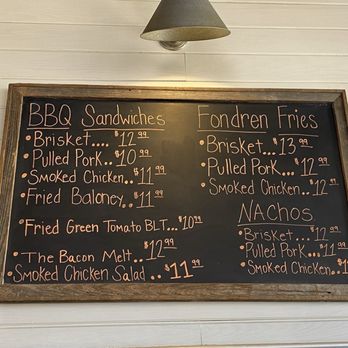 BBQ Sandwiches
• Brisket.... $12.99
• Pulled Pork.. $10.99
• Smoked Chicken.. $11.99
• Fried Baloney.. $11.99
• Fried Green Tomato BLT... $10.99
• The Bacon Melt.. $12.99
• Smoked Chicken Salad .. $11.99
Fondren Fries
• Brisket.. $13.99
• Pulled Pork... $12.99
• Smoked Chicken.. $12.99
NAchos
• Brisket... $12.99
• Pulled Pork.. $11.99
• Smoked Chicken..